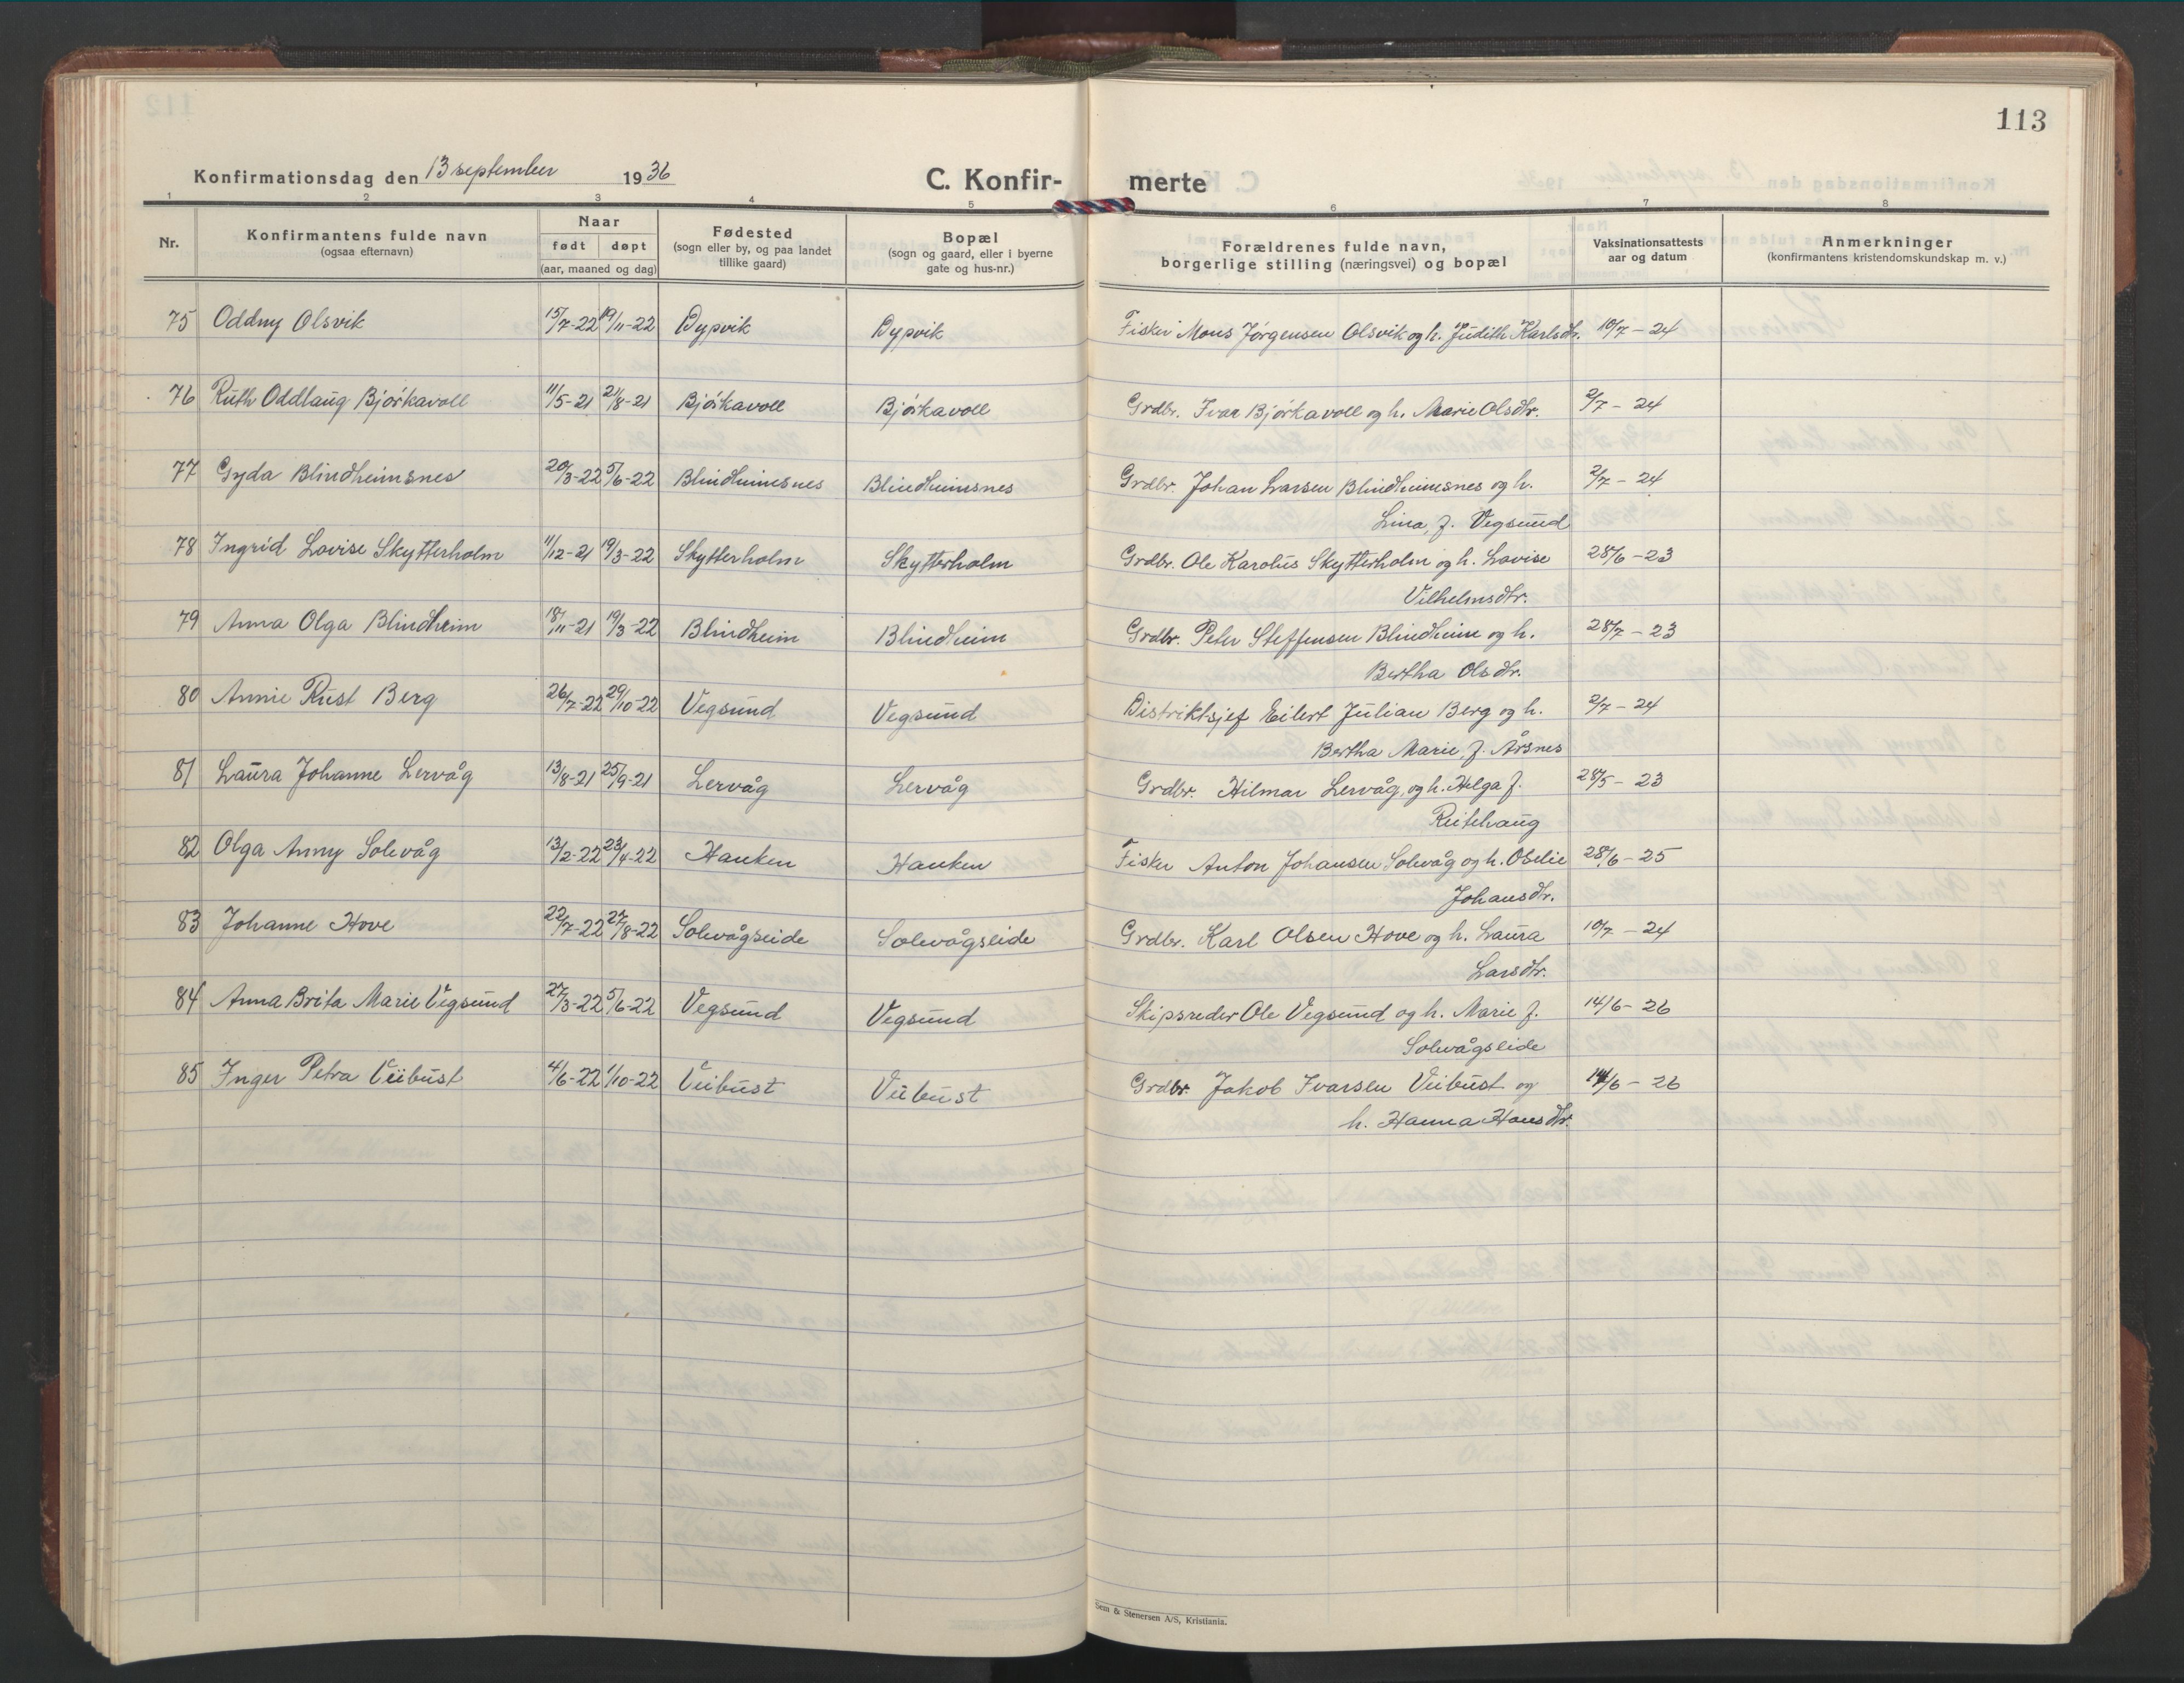 113
Konfirmationsdag den 13 september 1936 C. Konfir- merte
1 2 3 4 5 6 7 8
Nr. Konfirmantens fulde navn (ogsaa efternavn) Naar født døpt (aar, maaned og dag) Fødested (sogn eller by, og paa landet tillike gaard) Bopæl (sogn og gaard, eller i byerne gate og hus-nr.) Forældrenes fulde navn, borgerlige stilling (næringsvei) og bopæl Vaksinationsattests aar og datum Anmerkninger (konfirmantens kristendomskundskap m. v.)
75 Oddny Olsvik 15/7-22 19/11-22 Dypvik Dypvik Fisker Mons Jørgensen Olsvik og h. Judith Karlsdtr. 10/7 - 24
76 Ruth Oddlaug Bjørkavoll 11/5-21 21/8-21 Bjørkavoll Bjørkavoll Grdbr. Ivar Bjørkavoll og h. Marie Olsdtr. 2/7 - 24
77 Gyda Blindheimsnes 20/3-22 5/6-22 Blindheimsnes Blindheimsnes Grdbr. Johan Larsen Blindheimsnes og h. 2/7 - 24
Lina, f. Vegsund
78 Ingrid Lovise Skytterholm 11/12-21 19/3-22 Skytterholm Skytterholm Grdbr. Ole Karolus Skytterholm og h. Lovise 28/6 - 23
Vilhelmsdtr.
79 Anna Olga Blindheim 18/11-21 19/3-22 Blindheim Blindheim Grdbr. Peter Steffensen Blindheim og h. 28/7 - 23
Bertha Olsdtr.
80 Annie Rust Berg 26/7-22 29/10-22 Vegsund Vegsund Distriktsjef Eilert Julian Berg og h. 2/7 - 24
Bertha Marie f. Årsnes
81 Laura Johanne Lervåg 13/8-21 25/9-21 Lervåg Lervåg Grdbr. Hilmar Lervåg, og h. Helga f. 28/5 - 23
Reitehaug
82 Olga Anny Solevåg 13/2-22 23/4-22 Hanken Hanken Fisker Anton Johansen Solevåg og h. Oselie 28/6 - 25
Johansdtr.
83 Johanne Hove 22/7-22 27/8-22 Solevågseide Solevågseide Grdbr. Karl Olsen Hove og h. Laura 10/7 - 24
Larsdtr.
84 Anna Brita Marie Vegsund 27/3-22 5/6-22 Vegsund Vegsund Skipsreder Ole Vegsund og h. Marie f. 14/6 - 26
Solevågseide
85 Inger Petra Veibust 4/6-22 1/10-22 Veibust Veibust Grdbr. Jakob Ivarsen Veibust og 14/6 - 26
h. Hanna Hansdtr.
Sem & Stenersen A/S, Kristiania.